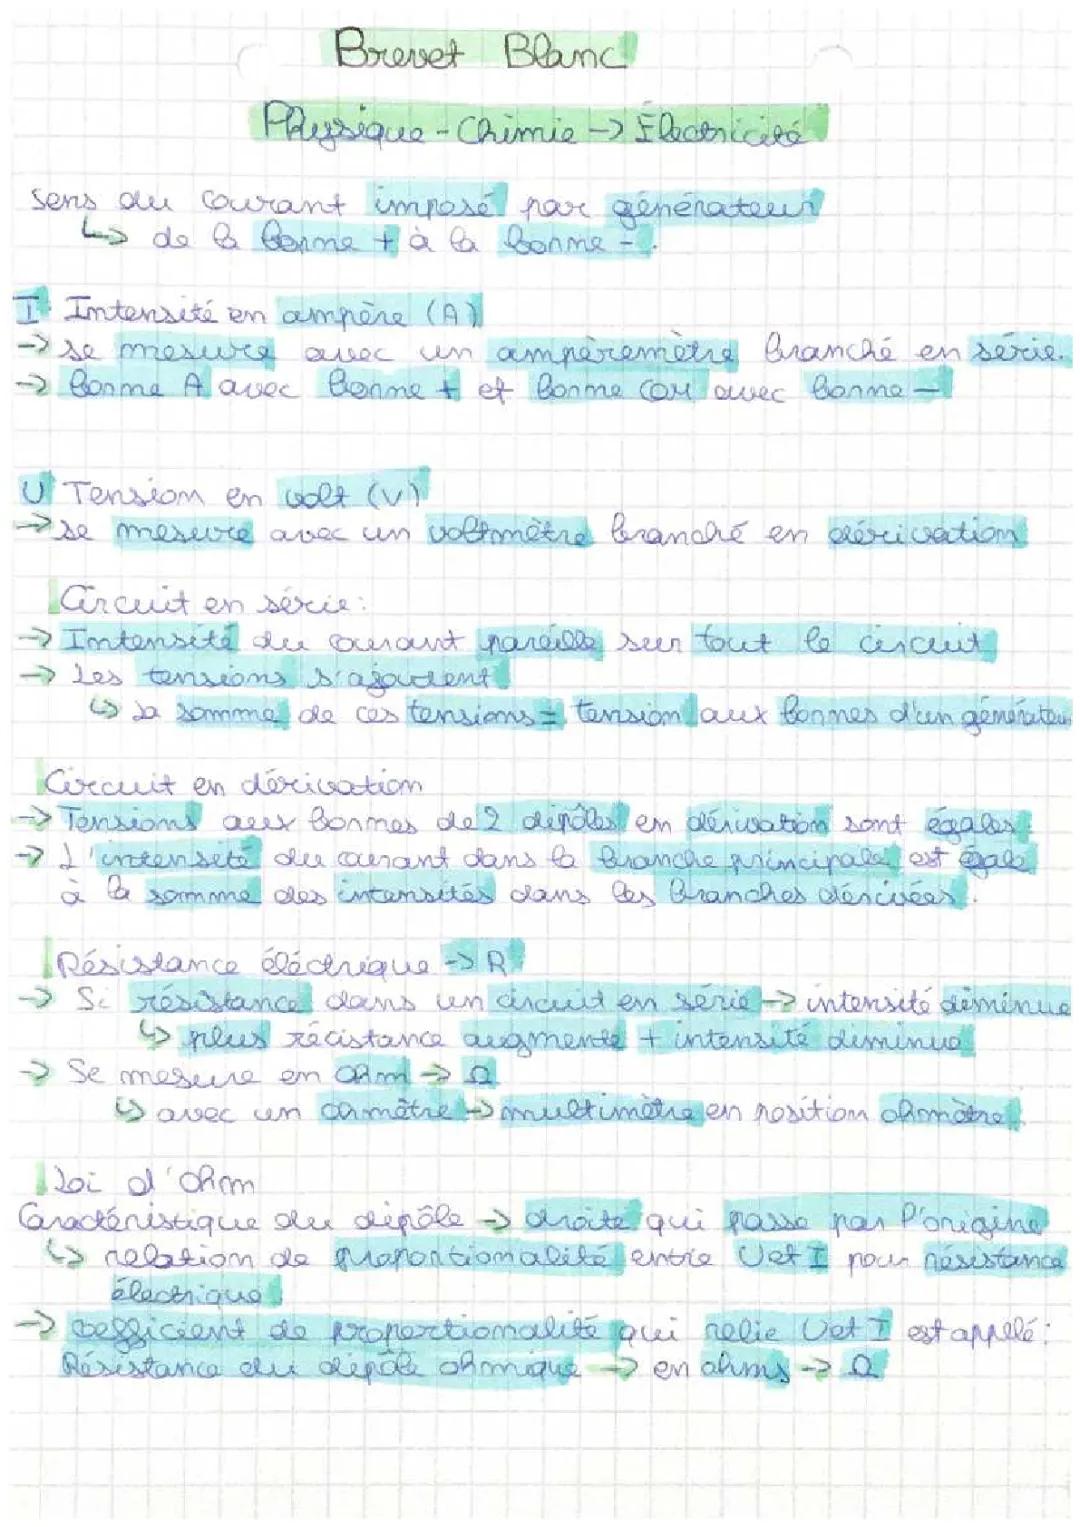 Brevet Blanc
Physique - Chimie → Électricité
sens du courant imposé par générateur
↳ de la borne + à la borne -.
I Intensité en ampère (A)
→ se mesure avec un ampèremètre branché en série.
→ borne A avec borne + et borne com avec borne -
U Tension en volt (V)
→ se mesure avec un voltmètre branché en dérivation
Circuit en série:
→ Intensité du courant pareille sur tout le circuit
→ Les tensions s'ajoutent
↳ La somme de ces tensions = tension aux bornes d'un générateur
Circuit en dérivation
→ Tensions aux bornes de 2 dipôles en dérivation sont égales.
→ L'intensité du courant dans la branche principale est égale
à la somme des intensités dans les branches dérivées.
Résistance éléctrique → R
→ Si résistance dans un circuit en série → intensité diminue
↳ plus récistance augmente + intensité diminue
→ Se mesure en ohm → Ω
↳ avec un ohmètre → multimètre en position ohmètre.
Loi d'ohm
Caractéristique du dipôle → droite qui passe par l'origine
↳ relation de proportionalité entre U et I pour résistance
électrique
→ coefficient de proportionalité qui relie U et I est appelé:
Résistance du dipôle ohmique → en ohms → Ω